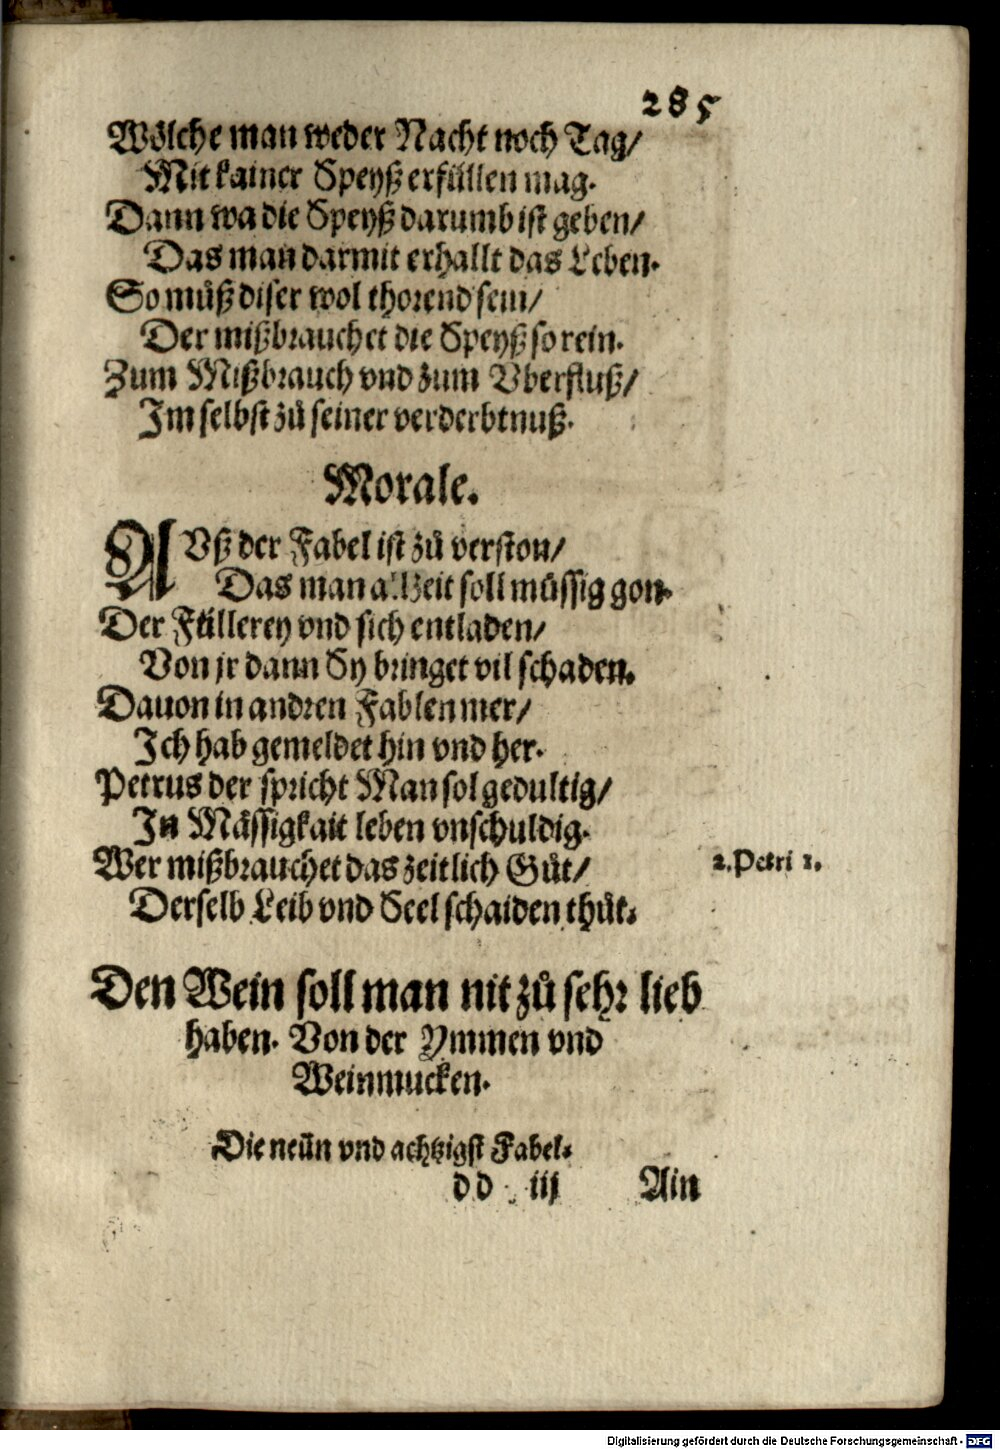 285
Wölche man weder Nacht noch Tag/
Mit kainer Speyß erfüllen mag.
Dann wa die Speyß darumb ist geben/
Das man darmit erhallt das Leben.
So müß diser wol thorend sein/
Der mißbrauchet die Speyß so rein.
Zum Mißbrauch vnd zum Vberfluß/
Im selbst zů seiner verderbtnuß.
Morale.
AVß der Fabel ist zů verston/
Das man allzeit soll müssig gon.
Der Füllerey vnd sich entladen/
Von jr dann Sy bringet vil schaden.
Dauon in andren Fablen mer/
Ich hab gemeldet hin vnd her.
Petrus der spricht Man sol gedultig/
In Mässigkait leben vnschuldig.
Wer mißbrauchet das zeitlich Gůt/
2. Petri 1.
Derselb Leib vnd Seel schaiden thůt.
Den Wein soll man nit zů sehr lieb
haben. Von der Ymmen vnd
Weinmucken.
Die neün vnd achtzigst Fabel.
dd iij Ain
Digitalisierung gefördert durch die Deutsche Forschungsgemeinschaft - DFG